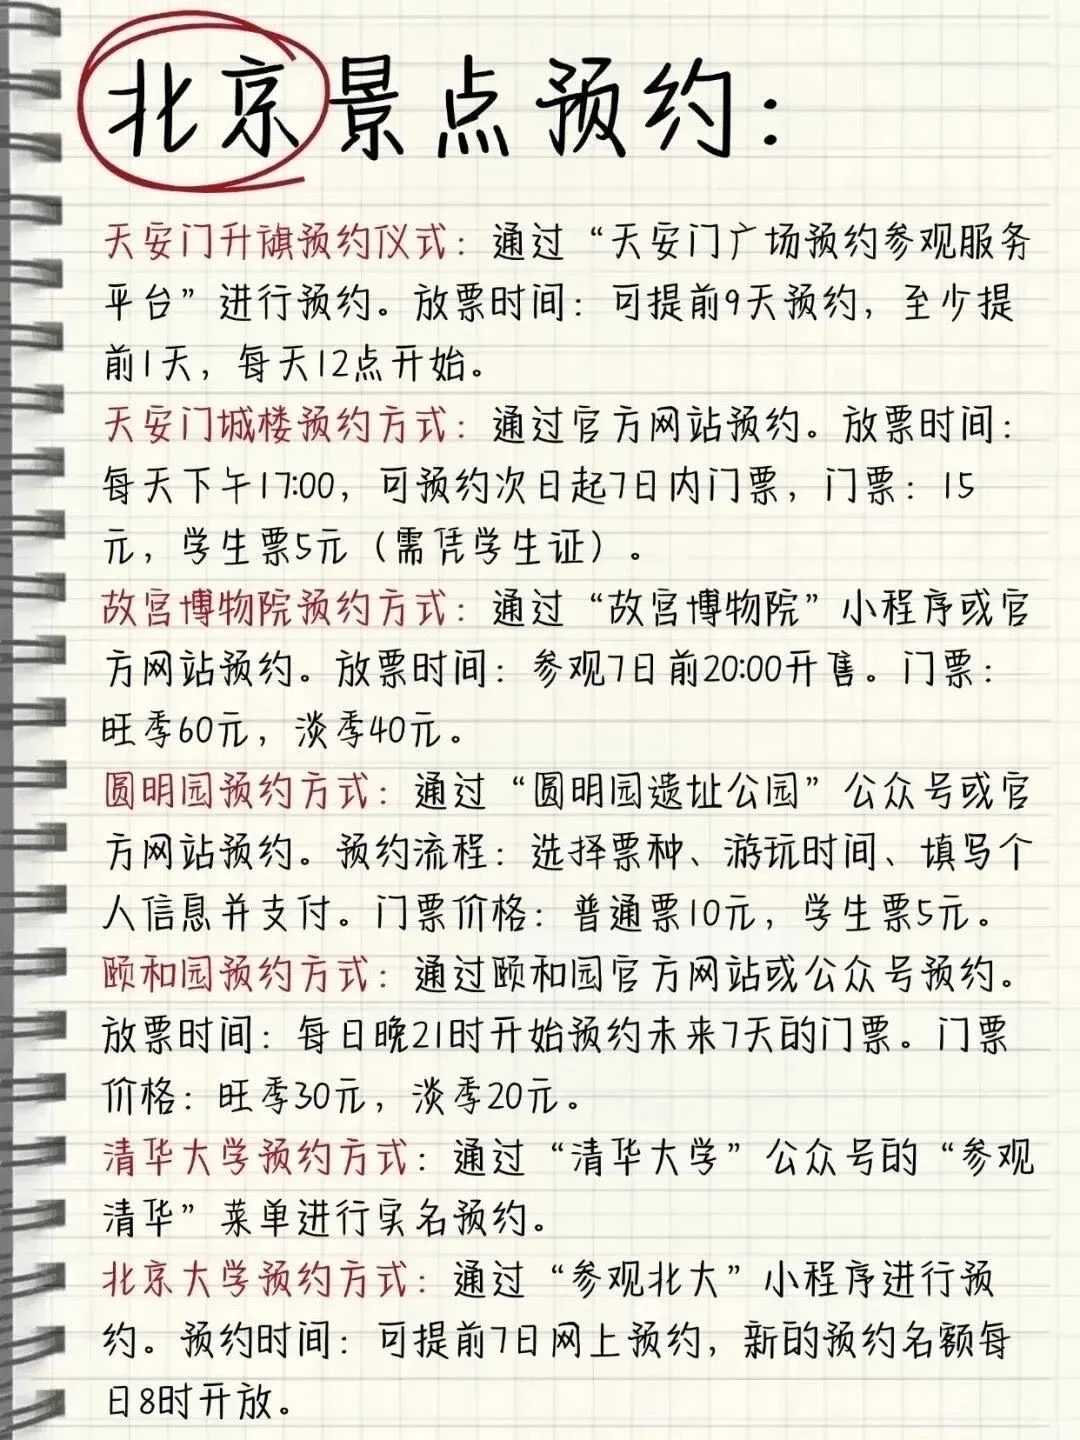 北京景点预约：
天安门升旗预约仪式：通过“天安门广场预约参观服务
平台”进行预约。放票时间：可提前9天预约，至少提
前1天，每天12点开始。
天安门城楼预约方式：通过官方网站预约。放票时间：
每天下午17:00，可预约次日起7日内门票，门票：15
元，学生票5元（需凭学生证）。
故宫博物院预约方式：通过“故宫博物院”小程序或官
方网站预约。放票时间：参观7日前20:00开售。门票：
旺季60元，淡季40元。
圆明园预约方式：通过“圆明园遗址公园”公众号或官
方网站预约。预约流程：选择票种、游玩时间、填写个
人信息并支付。门票价格：普通票10元，学生票5元。
颐和园预约方式：通过颐和园官方网站或公众号预约。
放票时间：每日晚21时开始预约未来7天的门票。门票
价格：旺季30元，淡季20元。
清华大学预约方式：通过“清华大学”公众号的“参观
清华”菜单进行实名预约。
北京大学预约方式：通过“参观北大”小程序进行预
约。预约时间：可提前7日网上预约，新的预约名额每
日8时开放。